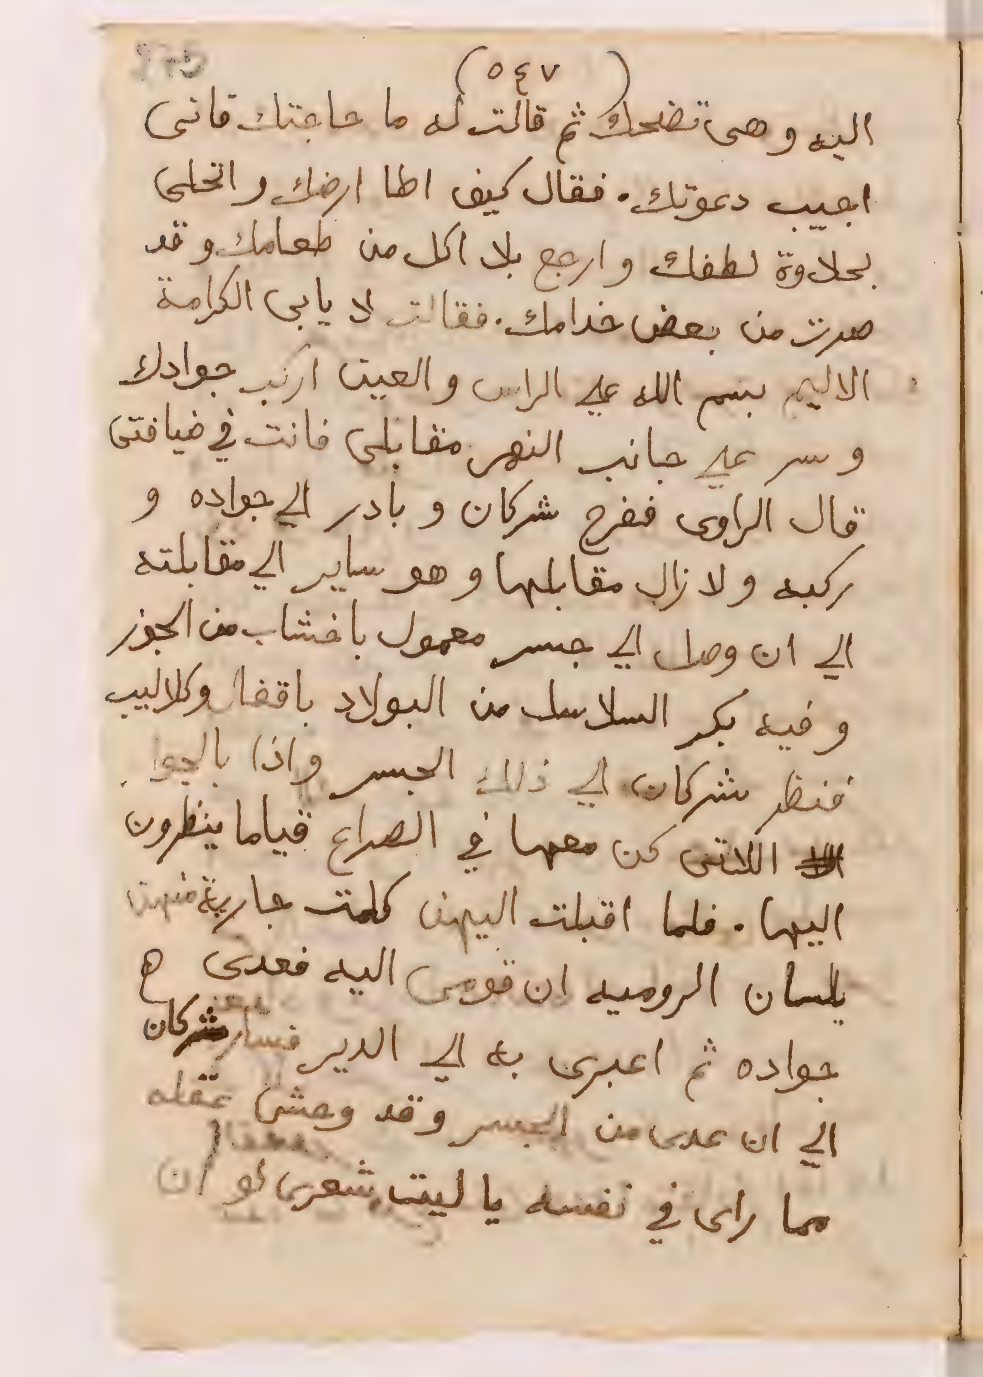 (٥٤٧)
اليه وهى تضحك ثم قالت له ما حاجتك فانى
اجيب دعوتك. فقال كيف اطا ارضك واتحلى
بحلاوة لطفك وارجع بلا اكل من طعامك وقد
صرت من بعض خدامك. فقالت لا يابى الكرامة
الا ليم بسم الله على الراس والعين اركب جوادك
وسر على جانب النهر مقابلى فانت في ضيافتى
قال الراوى ففرح شركان وبادر الي جواده و
ركبه ولا زال مقابلها وهو ساير الي مقابلته
الي ان وصل الي جسر معمول باخشاب من الجوز
وفيه بكر السلاسل من البولاد باقفال وكلاليب
فنظر شركان الي ذلك الجسر واذا بالجوا
اللاتى كن معها في الصراع قياما ينظرون
اليها. فلما اقبلت اليهن كلمت جارية منهن
بلسان الروميه ان قومى اليه فعدى
جواده ثم اعبرى به الي الدير فسار شركان
الي ان عدى من الجسر وقد وعقله
مما راى في نفسه يا ليت شعرى لو ان